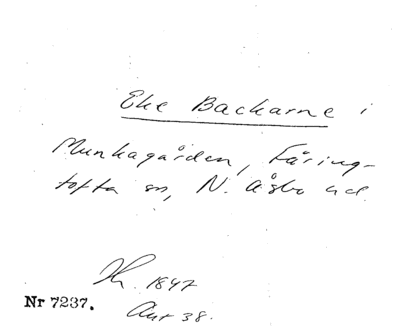 Eke Backarne i
Munkagården, Färing-
tofta sn, N. Åsbo hd.
1847
Nr 7237.
Ant 38.